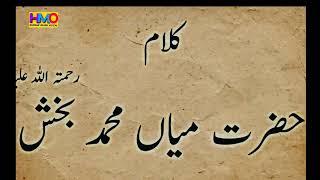 HMO
کلام
رحمتہ اللہ علیہ
حضرت میاں محمد بخش